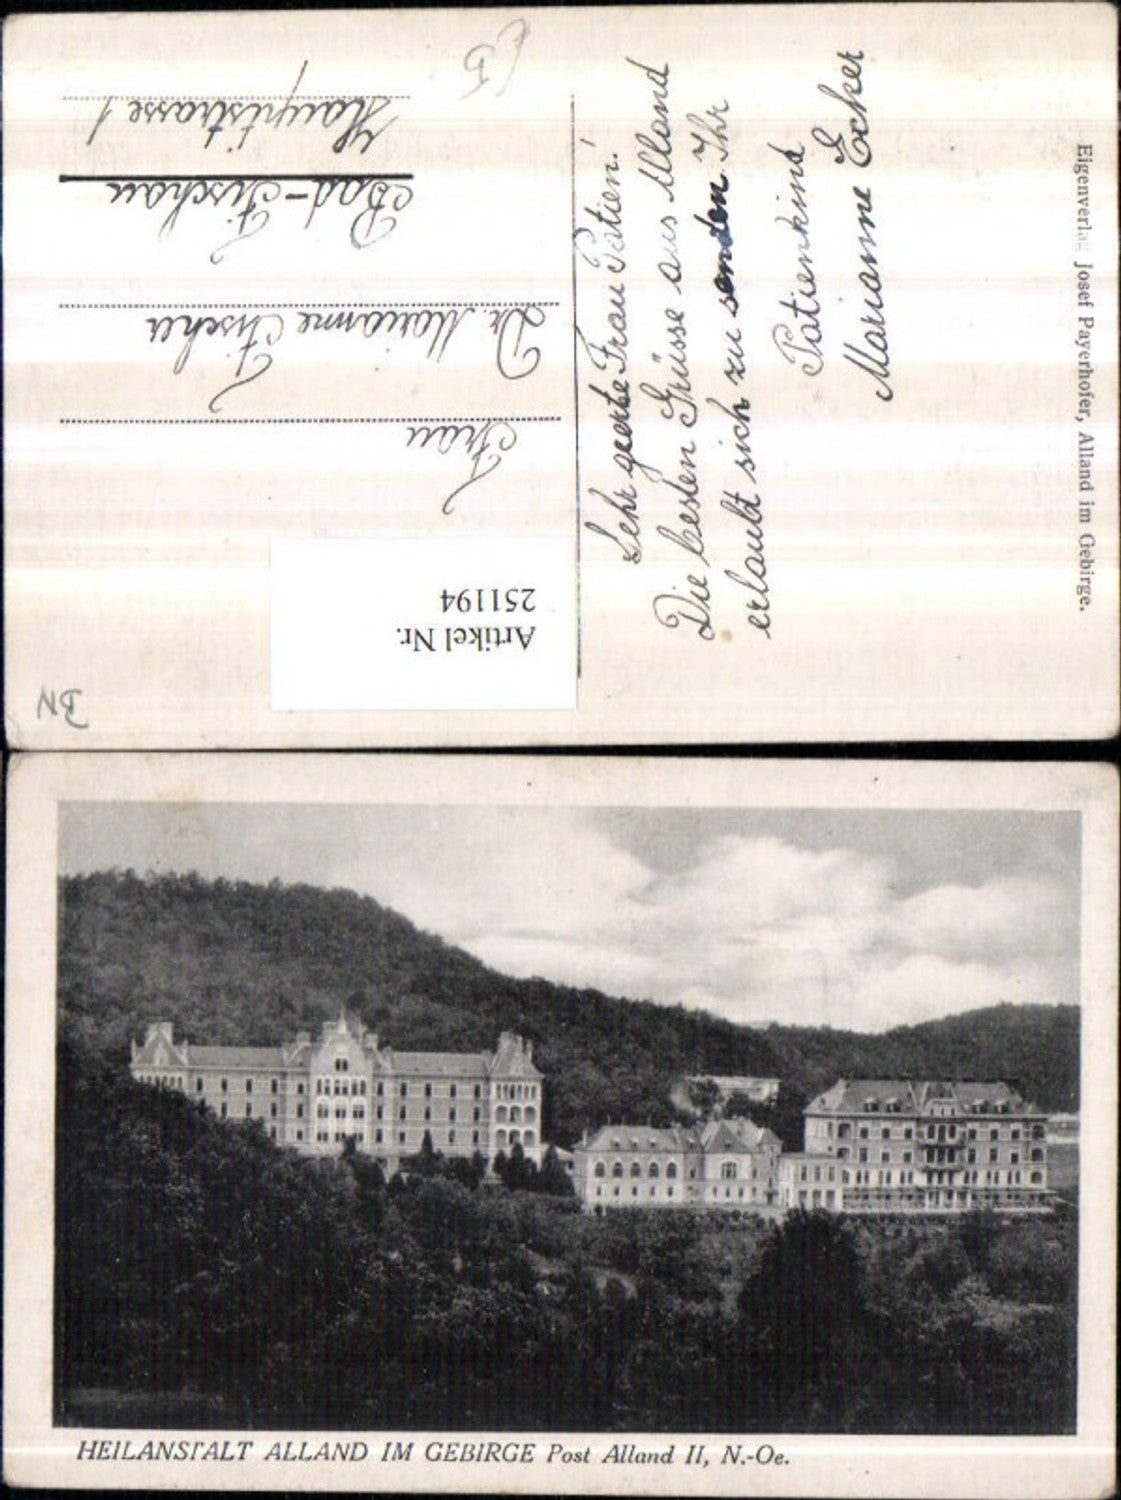 Sehr geerte Frau Patien!
Die besten Grüsse aus Alland
erlaubt sich zu senden Ihr
Patienkind
Marianne Ecker
Frau
Dr. Marianne Fischer
Bad-Fischau
Hauptstrasse 1
Artikel Nr.
251194
BN
Eigenverlag Josef Payerhofer, Alland im Gebirge.
HEILANSTALT ALLAND IM GEBIRGE Post Alland II, N.-Oe.